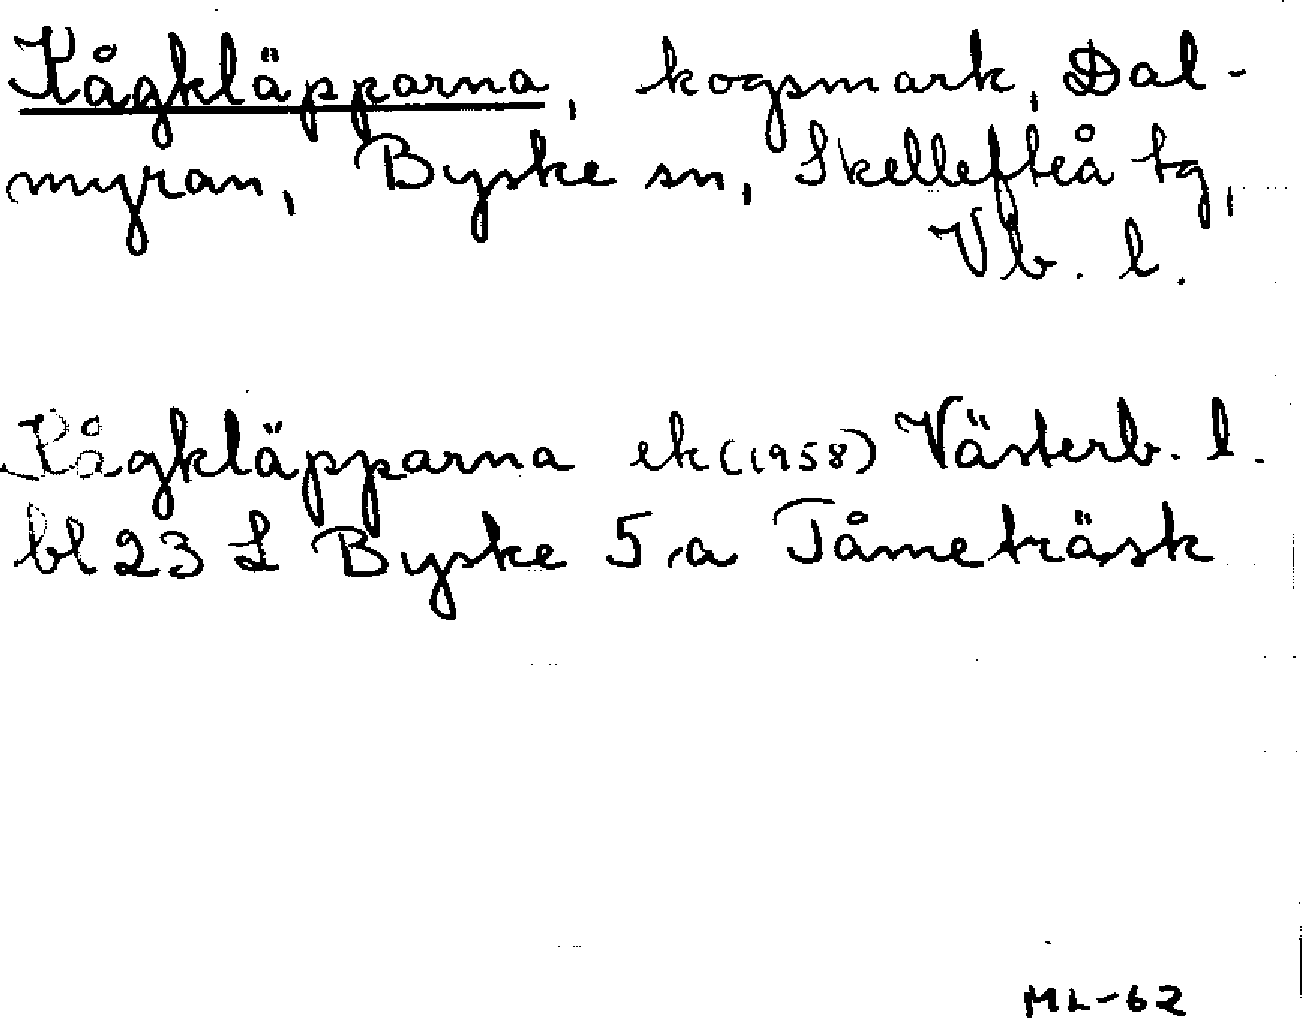 Kågkläpparna, kogsmark, Dal-
myran, Byske sn, Skellefteå tg,
Vb. l.
Kågkläpparna ek (1958) Västerb. l.
bl 23 L Byske 5 a Tåmeträsk
ML-62